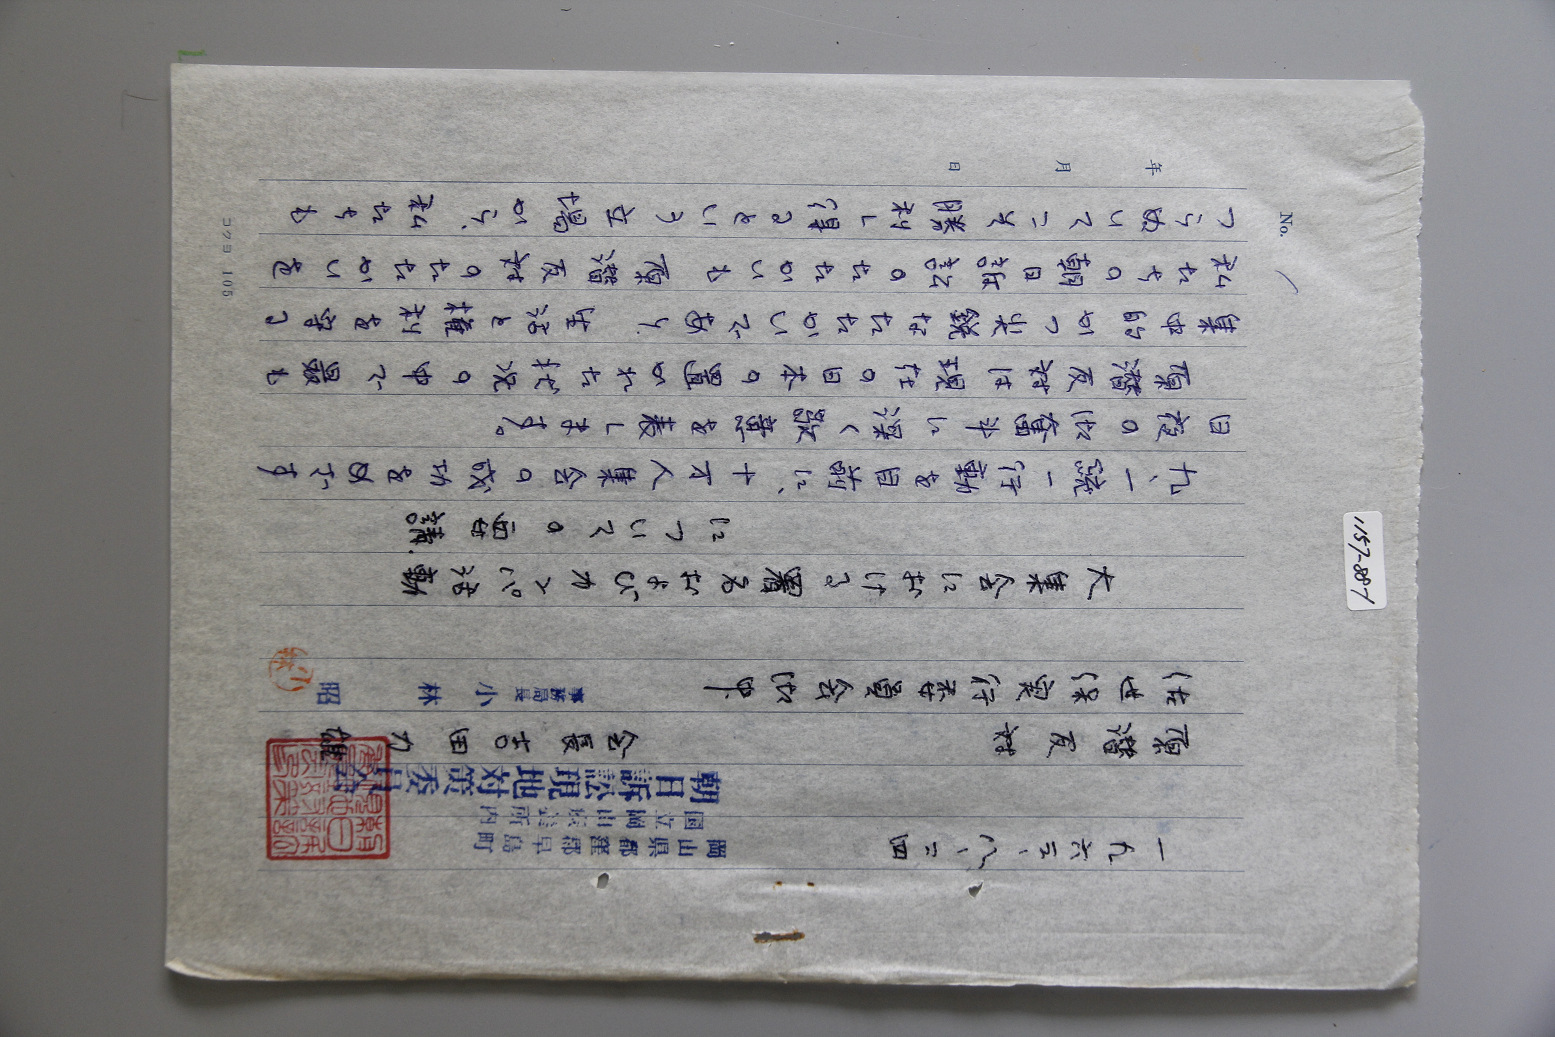 No.
年 月 日
一九六三、八、二四
岡山県都窪郡早島町
国立岡山療養所内
朝日訴訟現地対策委員会
原潜反対
会長 吉田力雄
佐世保実行委員会御中
事務局長 小林 昭
大集会における署名およびカンパ活動
についての要請.
九、一統一行動を目前に、十万人集会の成功をめざす
日夜の御奮斗に深く敬意を表します。
原潜反対は現在の日本の置かれた状況の中で最も
集中的かつ尖鋭なたたかいであり、生活と権利を守る
私たちの朝日訴訟のたたかいも原潜反対のたたかいを
つらぬいてこそ勝利し得るという立場から、私たちも
コクヨ 105
1157-88-1